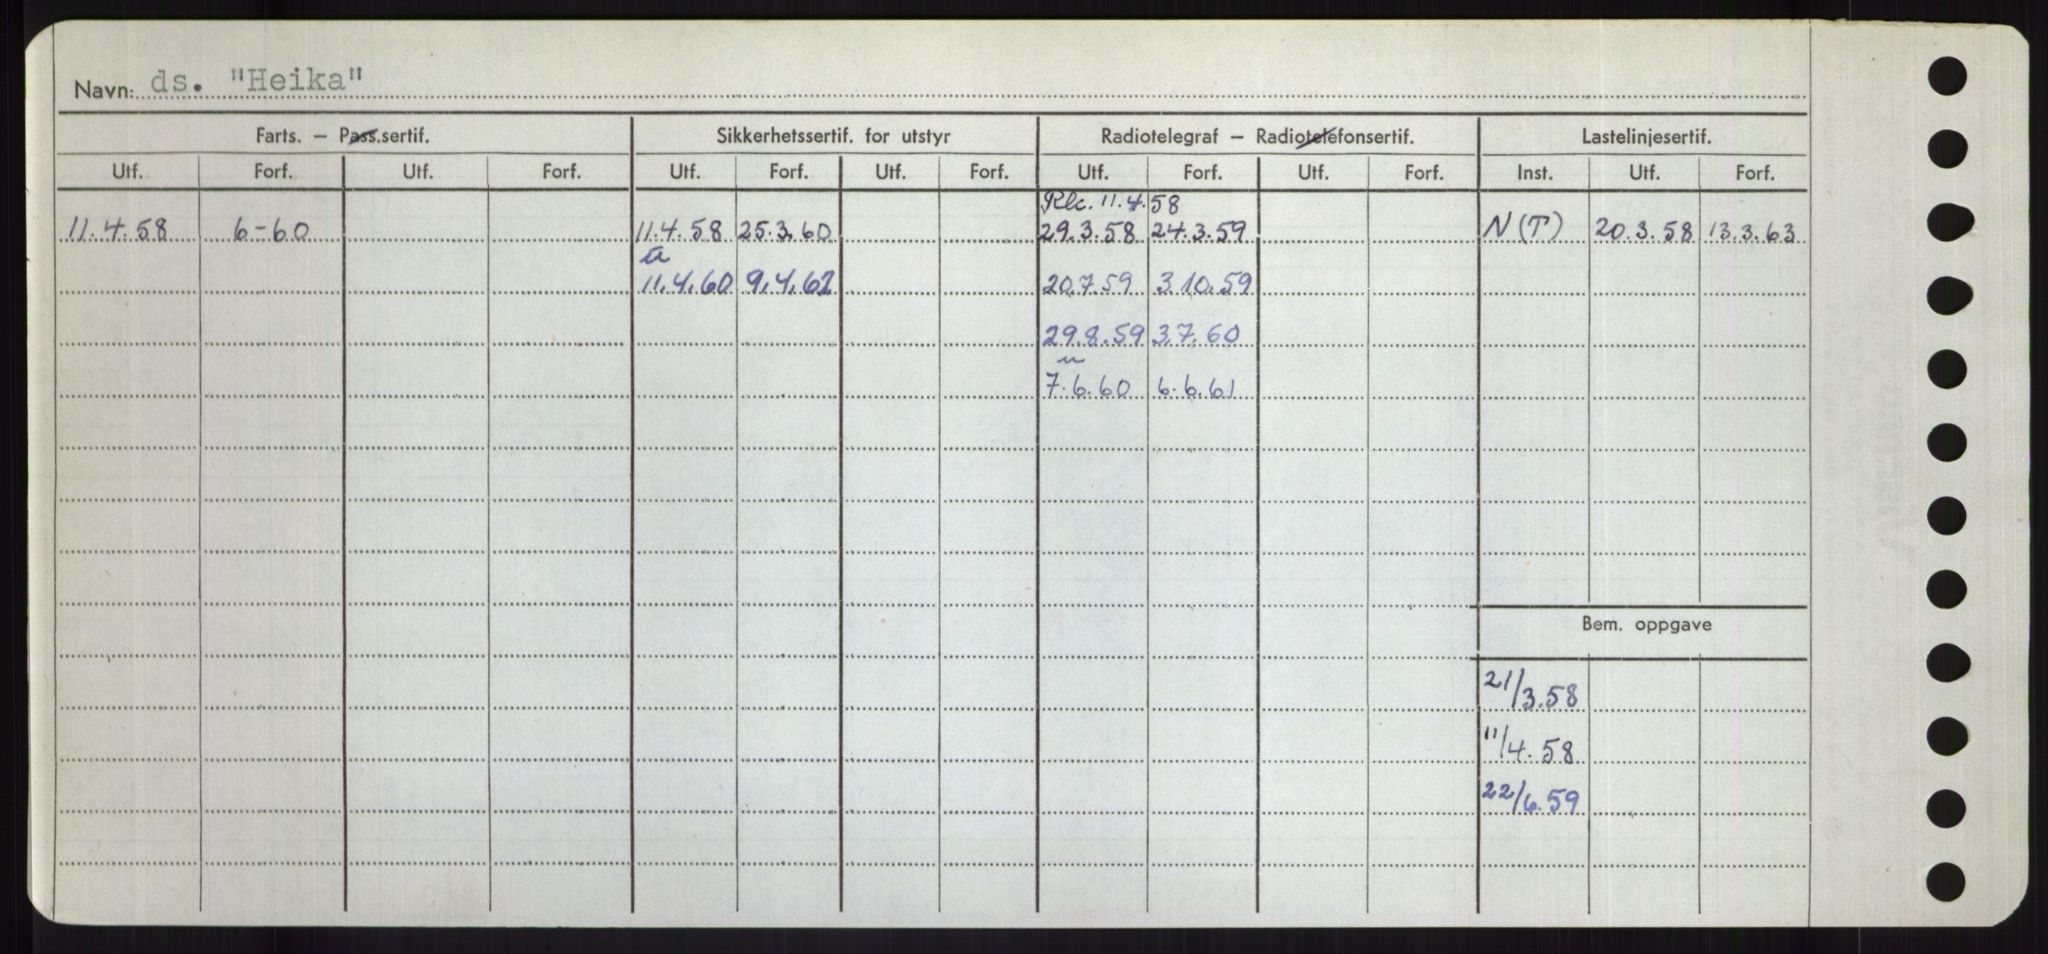 Navn: ds. "Heika"
Farts. – Pass.sertif. Sikkerhetssertif. for utstyr Radiotelegraf – Radiotelefonsertif. Lastelinjesertif.
Utf. Forf. Utf. Forf. Utf. Forf. Utf. Forf. Utf. Forf. Utf. Forf. Inst. Utf. Forf.
Rlc. 11.4.58
11.4.58 6-60 11.4.58 25.3.60 29.3.58 24.3.59 N(T) 20.3.58 13.3.63
a
11.4.60 9.4.62 20.7.59 3.10.59
29.8.59 3.7.60
7.6.60 6.6.61
Bem. oppgave
21/3.58
11/4.58
22/6.59